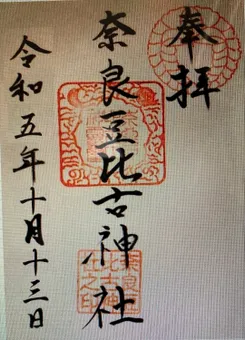 奉拝
奈良豆比古神社
令和五年十月十三日